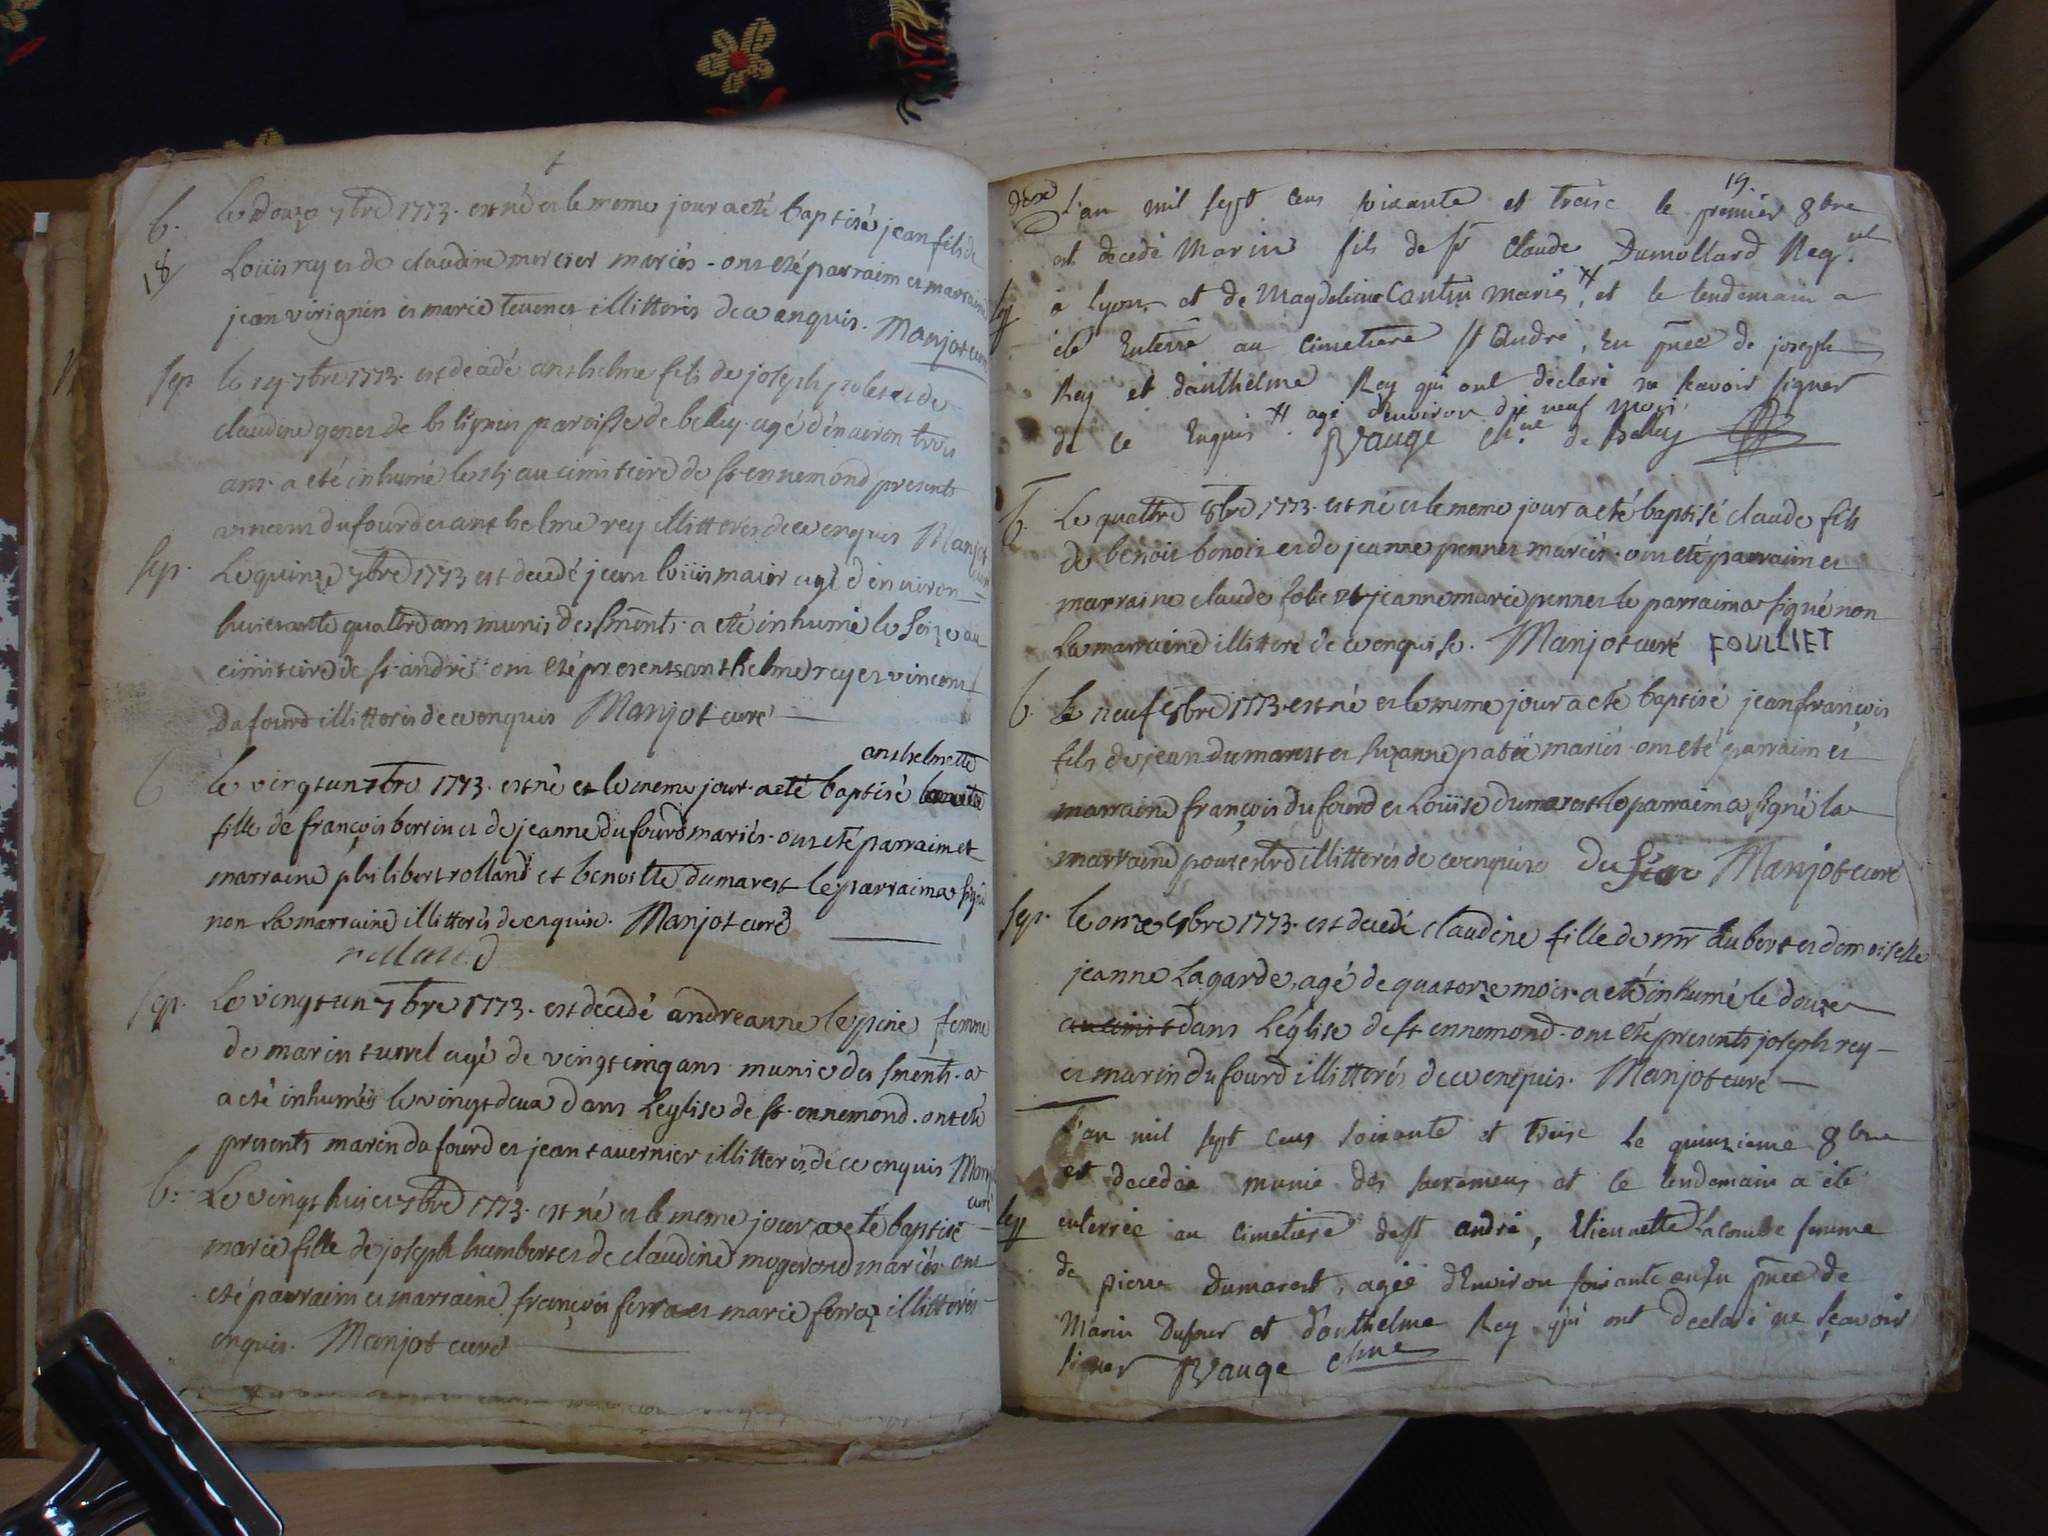 b. Le douze 7bre 1773. est né et le meme jour a eté baptisé jean fils de
18 Loüis rey et de claudine mercier mariés - ont eté parrain et marraine
jean virignin et marie tevenet illitterés de ce enquis. Manjot curé
sep le 14 7bre 1773. est decedé anthelme fils de joseph
claudine de paroisse de belley agé d'environ trois
ans. a eté inhumé le 15 au cimiteire de st ennemond presents
vincent dufourd et anthelme rey illitterés de ce enquis Manjot curé
sep. Le quinze 7bre 1773 est decedé jean loüis maior agé d'environ
soixante quattre ans munis des sments. a eté inhumé le seize au
cimiteire de st. andré. ont eté presents anthelme rey et vincent
Dufourd illitterés de ce enquis Manjot curé
anthelmette
b le vingt un 7bre 1773. est né et le meme jour a eté baptisé
fille de françois berrin et de jeanne dufourd mariés. ont eté parrain et
marraine philibert rolland et benoitte dumarest le parrain a signé
non la marraine illitterés de enquise. Manjot curé
rolland
sep. Le vingt un 7bre 1773. est decedé andreanne lepine femme
de marin turrel agé de vingt cinq ans munie des sments. a
a eté inhumés le vingt deux dans Leglise de st. ennemond. ont eté
presents marin dufourd et jean tavernier illitterés de ce enquis Manj
curé
b. Le vingt huit 7bre 1773. est né et le meme jour a eté baptisé
marie fille de joseph humbert et de claudine mogerond mariés. ont
eté parrain et marraine françois ferra et marie ferraz illitterés
enquis. Manjot curé
19.
L'an mil sept cens soixante et treise le premier 8bre
est decedé Marin fils de sr Claude Dumollard Neg.nt
sep à Lyon et de Magdeleine Contin mariés, # et le lendemain a
été Enterré au Cimetiere st André, En pñce de joseph
Rey et d'anthelme Rey qui ont declaré ne sçavoir signer
# agé d'environ dix neuf mois
de ce Enquis Vauge ch.ne de Belley
b. Le quattre 8bre 1773. est né et le meme jour a eté baptisé claude fils
de benoit benoit et de jeanne pennet mariés. ont eté parrain et
marraine claude et jeanne marie pennet le parrain a signé non
La marraine illitteré de ce enquise. Manjot curé FOULLIET
b. Le neuf 8bre 1773. est né et le meme jour a eté baptisé jean françois
fils de jean dumarest et suzanne mariés. ont eté parrain et
marraine françois dufourd et Loüise dumarest le parrain a signé la
marraine pour estre illitterés de ce enquise Manjot curé
sep. le onze 8bre 1773. est decedé claudine fille de mr aubert et demoiselle
jeanne Lagarde, agé de quatorze mois. a eté inhumé le douze
au cimit dans Léglise de st ennemond. ont eté presents joseph rey
et marin dufourd illitterés de ce enquis. Manjot curé
L'an mil sept cens soixante et treise Le quinzieme 8bre
est decedée munie des sacremens et le lendemain a été
sep enterrée au cimetiere de st andré, Etiennette Lacombe femme
de pierre Dumarest, agée d'Environ soixante ans En pñce de
Marin Dufour et d'anthelme Rey qui ont declaré ne sçavoir
signer Vauge chne